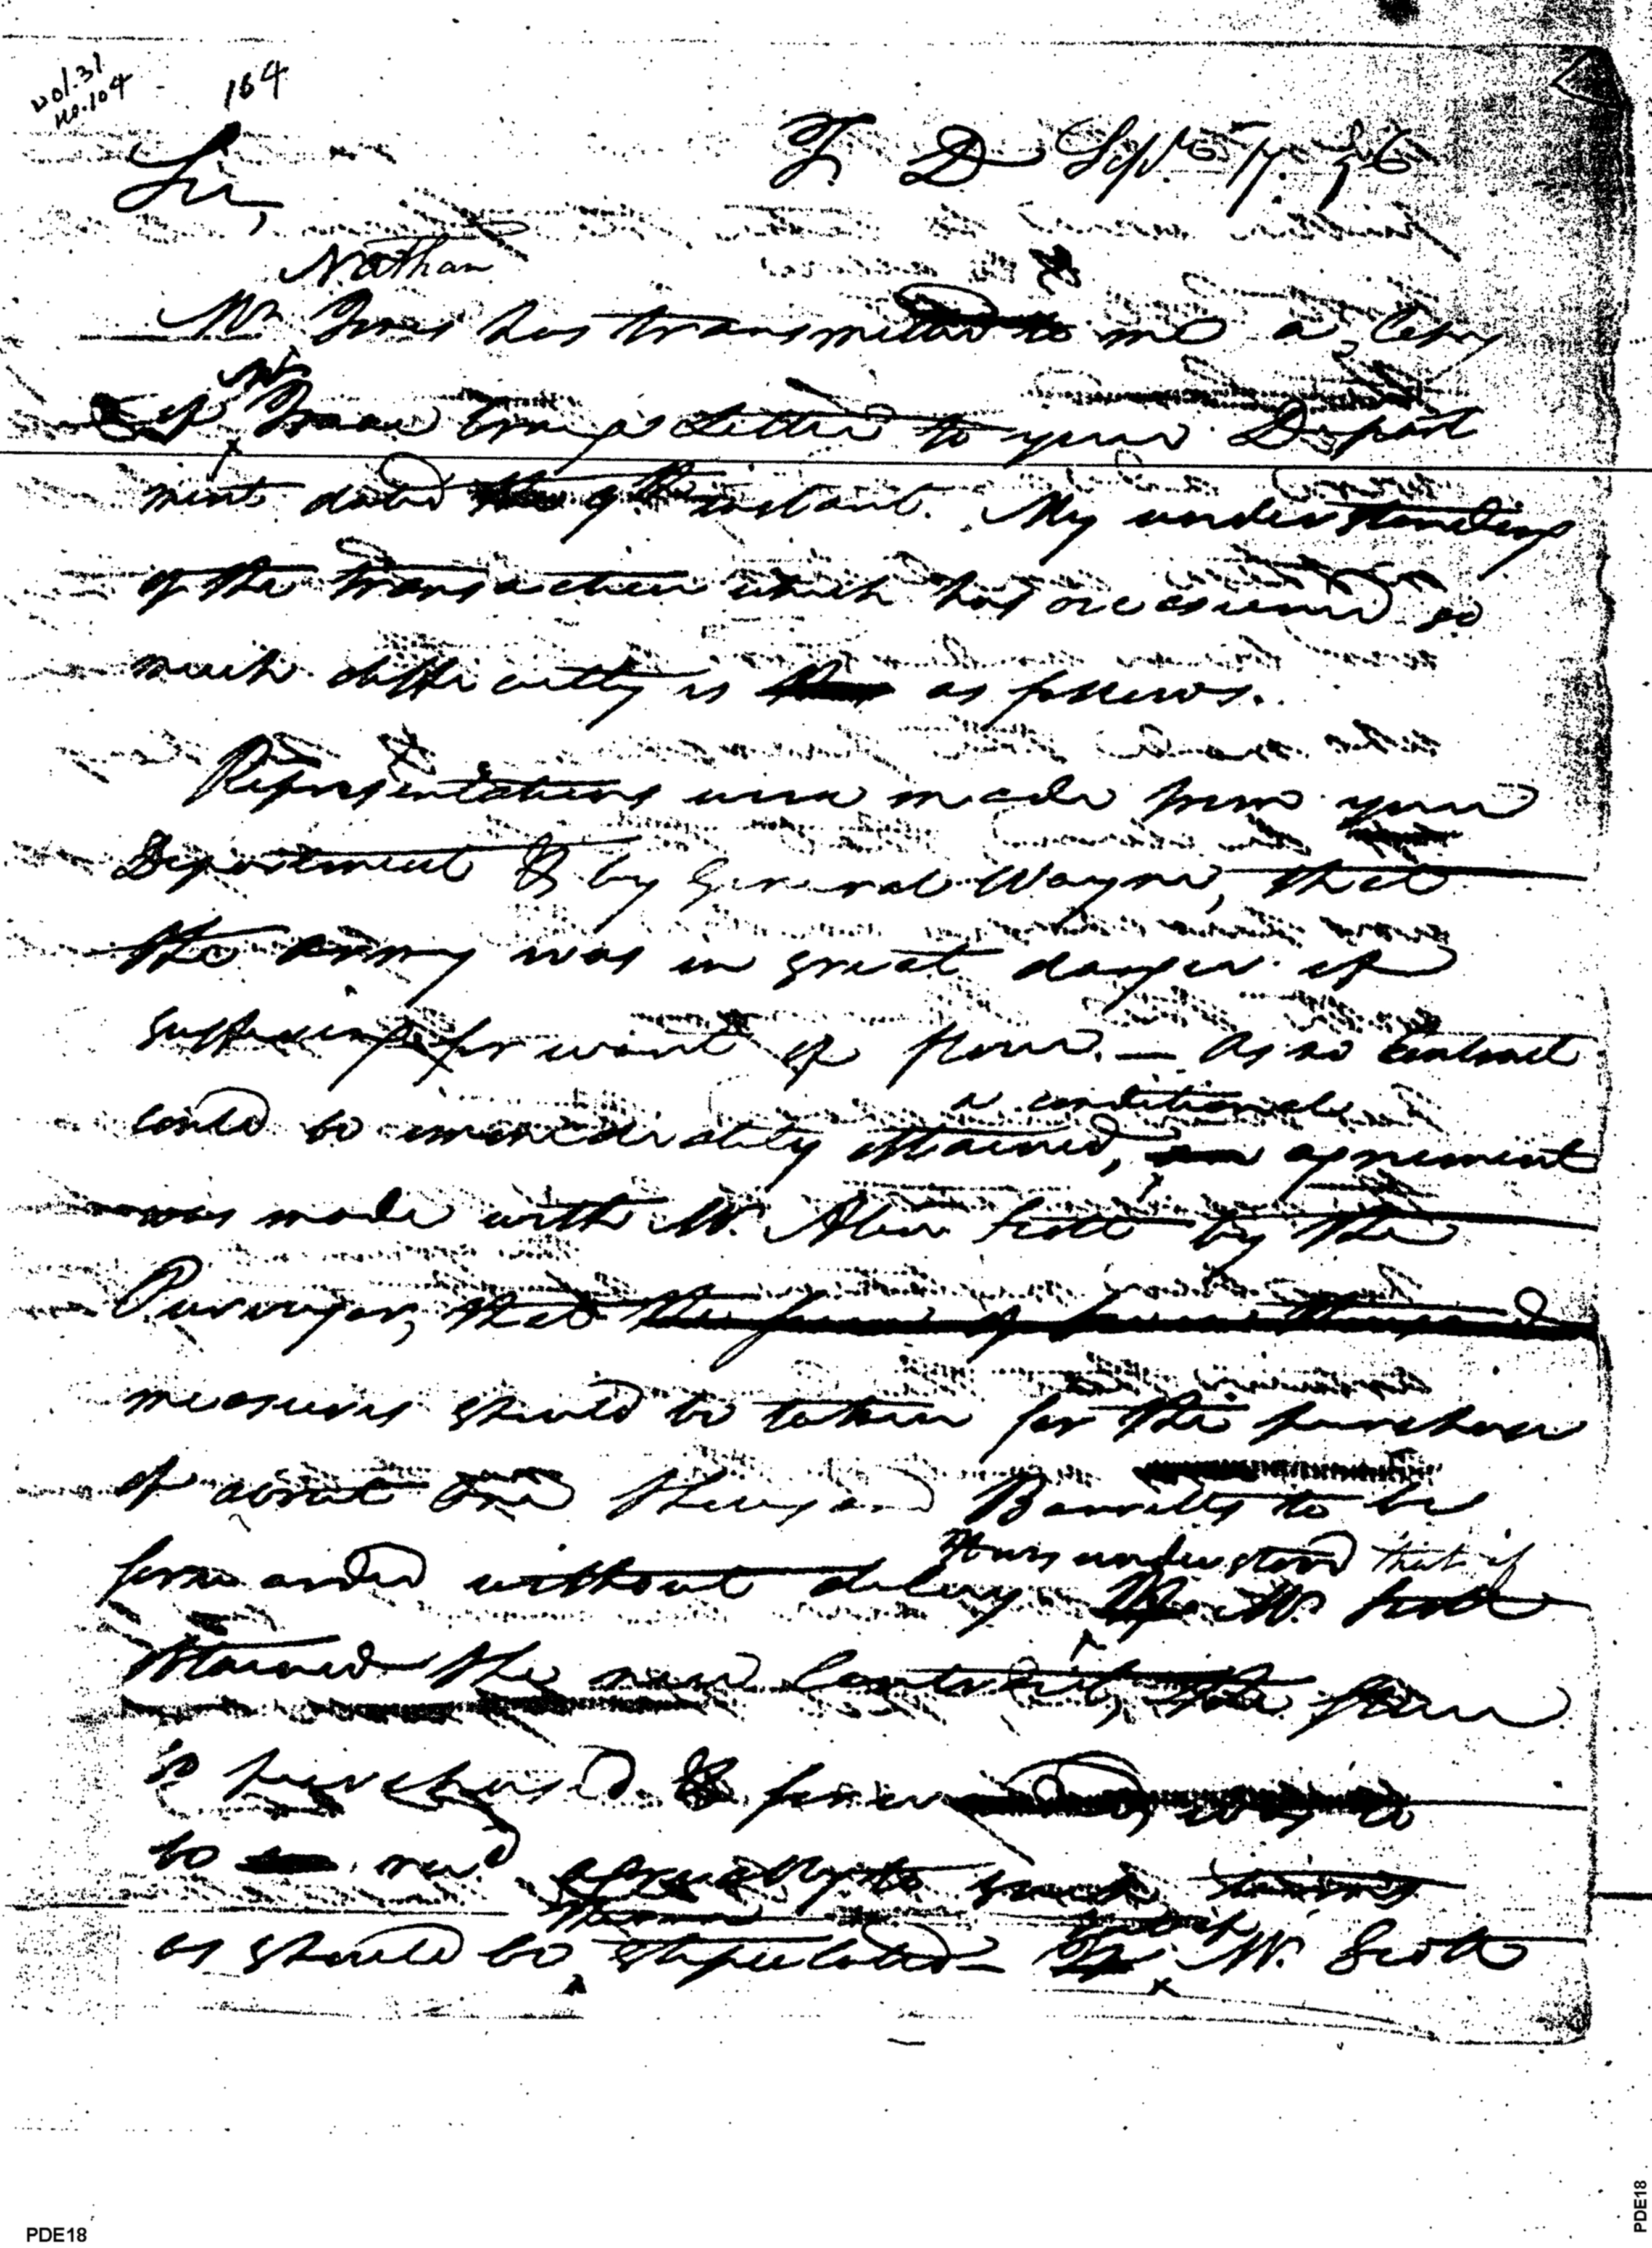 vol. 31
no. 104
104
T. D Sept. 17. 96
Sir,
Nathan
Mr. Jones has transmitted to me a Copy
Mr
of Isaac Craig's Letter to your Depart
ment dated the 9th instant. My understanding
of the transaction which has occasioned so
much difficulty is as follows.
Representations were made from your
Department & by General Wayne, that
the army was in great danger of
suffering for want of flour. — As no Contract
a conditional
could be immediately obtained, an agreement
was made with Mr. Abm Scott by the
Purveyor, that the
measures should be taken for the purchase
of about One thousand Barrells to be
It was understood that if
forwarded without delay Mr. Scott
obtained the new Contract, the flour
so purchased & forwarded, was to
be recd agreeably to such terms
as should be stipulated — If Mr. Scott
PDE18
PDE18